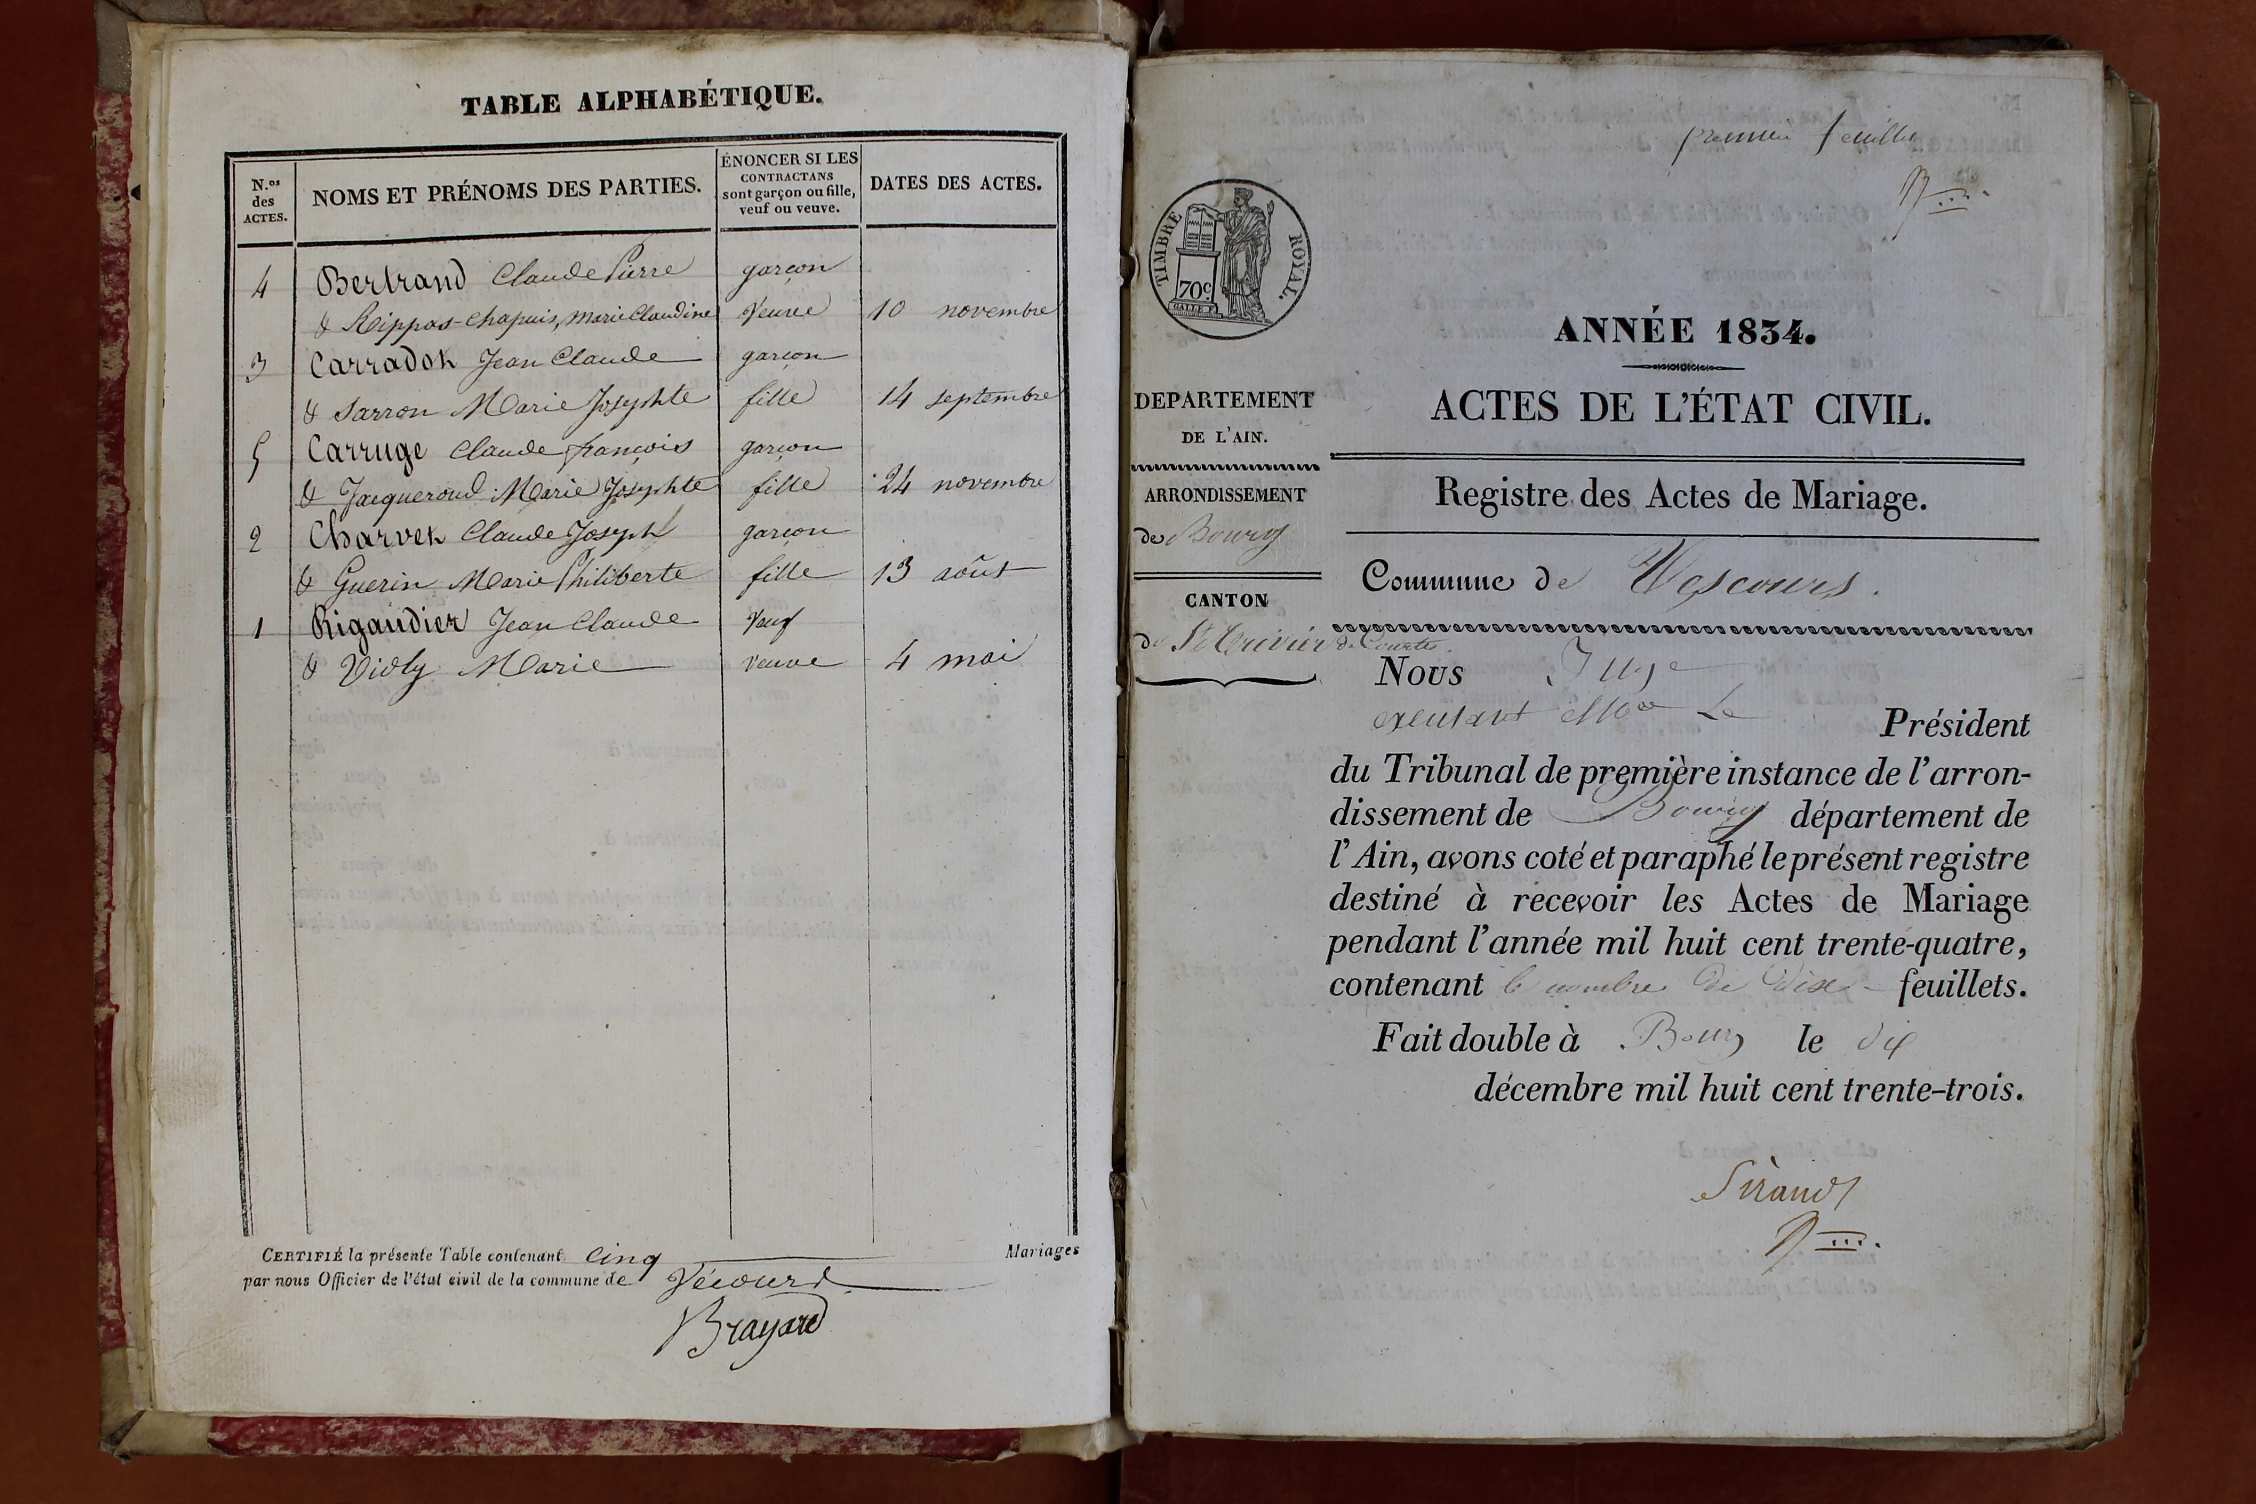 TABLE ALPHABÉTIQUE.
N.os des ACTES.
NOMS ET PRÉNOMS DES PARTIES.
ÉNONCER SI LES CONTRACTANS sont garçon ou fille, veuf ou veuve.
DATES DES ACTES.
4 Bertrand Claude Pierre garçon
& Rippas-Chapuis, Marie Claudine Veuve 10 novembre
3 Carradot Jean Claude garçon
& Sarron Marie Josephte fille 14 septembre
5 Carruge Claude françois garçon
& Jacqueroud Marie Josephte fille 24 novembre
2 Charvet Claude Joseph garçon
& Guerin Marie Philiberte fille 13 août
1 Rigaudier Jean Claude Veuf
& Vidly Marie veuve 4 mai
CERTIFIÉ la présente Table contenant Cinq Mariages
par nous Officier de l'état civil de la commune de Vécours
Brayard
premier feuillet
TIMBRE ROYAL.
70c
GALLE
DEPARTEMENT
DE L'AIN.
ARRONDISSEMENT
de Bourg
CANTON
de St Trivier de Courtes
ANNÉE 1834.
ACTES DE L'ÉTAT CIVIL.
Registre des Actes de Mariage.
Commune de Vescours.
Nous Juge
Le Président
du Tribunal de première instance de l'arron-
dissement de Bourg département de
l'Ain, avons coté et paraphé le présent registre
destiné à recevoir les Actes de Mariage
pendant l'année mil huit cent trente-quatre,
contenant le nombre de dix feuillets.
Fait double à Bourg le dix
décembre mil huit cent trente-trois.
Sirand